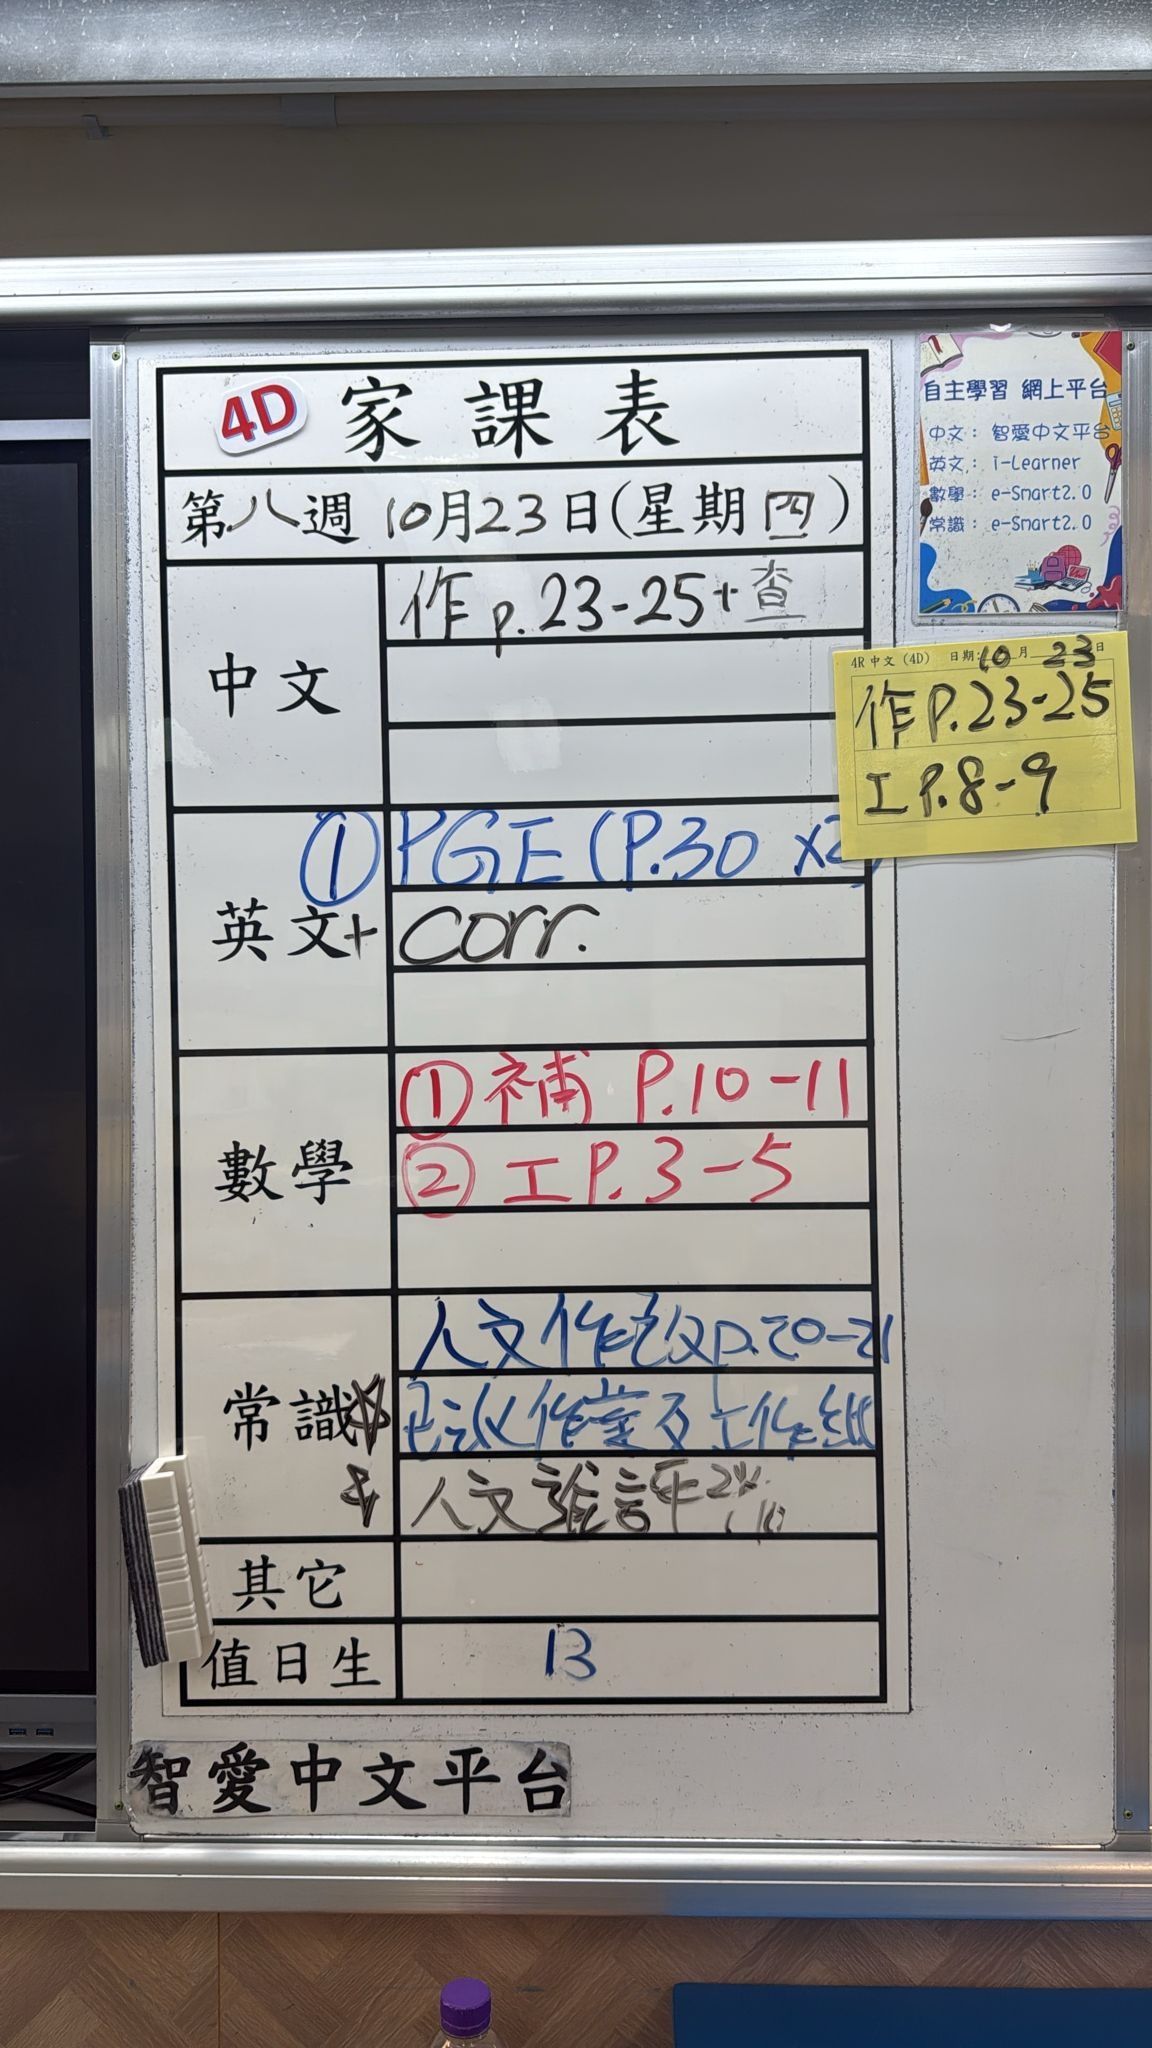 4D 家課表
第八週 10月23日(星期四)
中文
作p.23-25+查
英文+
① PGE (P.30 x2
corr.
數學
① 補 P.10-11
② 工 P.3-5
常識
人文作改p.20-21
作業及工作紙
人文 評
其它
值日生
13
智愛中文平台
自主學習 網上平台
中文：智愛中文平台
英文：i-Learner
數學：e-Smart2.0
常識：e-Smart2.0
4R 中文 (4D) 日期:10月23日
作P.23-25
工P.8-9